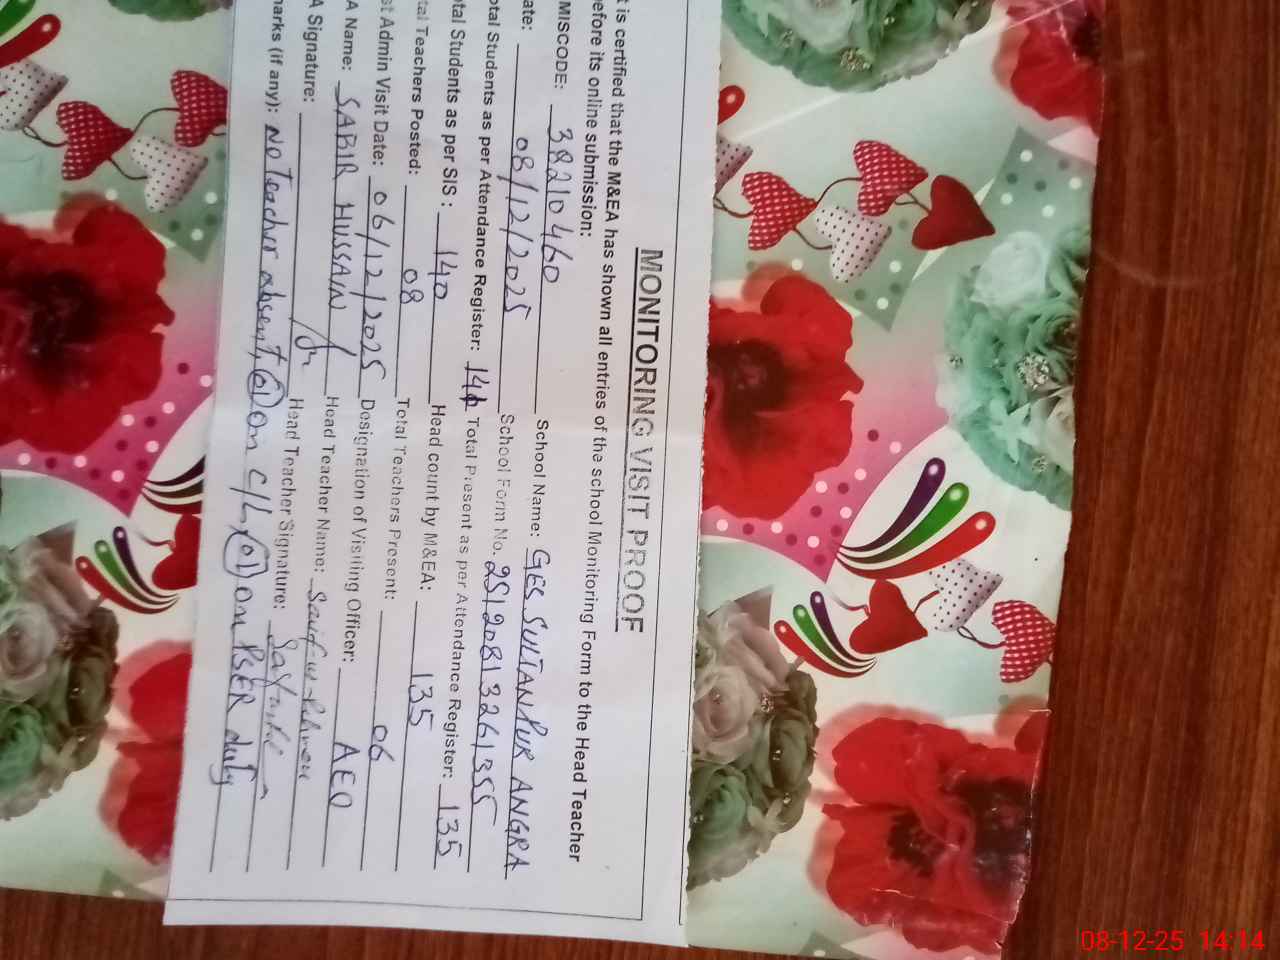 MONITORING VISIT PROOF
t is certified that the M&EA has shown all entries of the school Monitoring Form to the Head Teacher
efore its online submission:
MISCODE: 38210460 School Name: GES SULTANPUR ANGRA
ate: 08/12/2025 School Form No. 25120813261355
otal Students as per Attendance Register: 140 Total Present as per Attendance Register: 135
otal Students as per SIS: 140 Head count by M&EA: 135
tal Teachers Posted: 08 Total Teachers Present: 06
st Admin Visit Date: 06/12/2025 Designation of Visiting Officer: AEO
A Name: SABIR HUSSAIN Head Teacher Name:
A Signature: Head Teacher Signature:
marks (if any): No Teacher absent, 01 on C/L, 01 on PSER duty
08-12-25 14:14